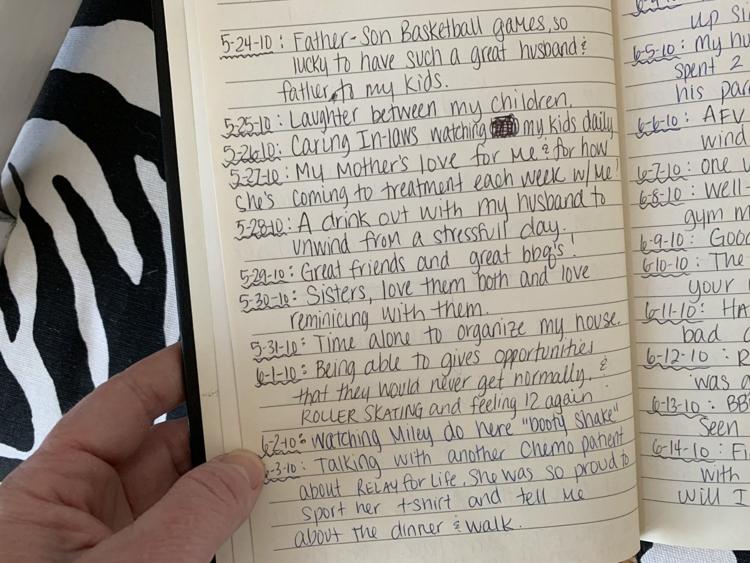 5-24-10: Father-Son Basketball games, so
lucky to have such a great husband &
father to my kids.
5-25-10: Laughter between my children.
5-26-10: Caring In-laws watching my kids daily
5-27-10: My Mother's love for me & for how
she's coming to treatment each week w/me!
5-28-10: A drink out with my husband to
unwind from a stressfull day.
5-29-10: Great friends and great bbq's!
5-30-10: Sisters, love them both and love
reminicing with them.
5-31-10: Time alone to organize my house.
6-1-10: Being able to gives opportunities
that they would never get normally. &
ROLLER SKATING and feeling 12 again
6-2-10: Watching Miley do here "booty shake"
-3-10: Talking with another Chemo patient
about RELAY for Life. She was so proud to
sport her t-shirt and tell me
about the dinner & walk.
up si
6-5-10: My hu
spent 2
his par
6-6-10: AFV
wind
6-7-10: one
6-8-10: Well-
gym m
6-9-10: Good
6-10-10: The
your
6-11-10: HA
bad
6-12-10:
was a
6-13-10: BB
Seen
6-14-10: Fi
with
will I